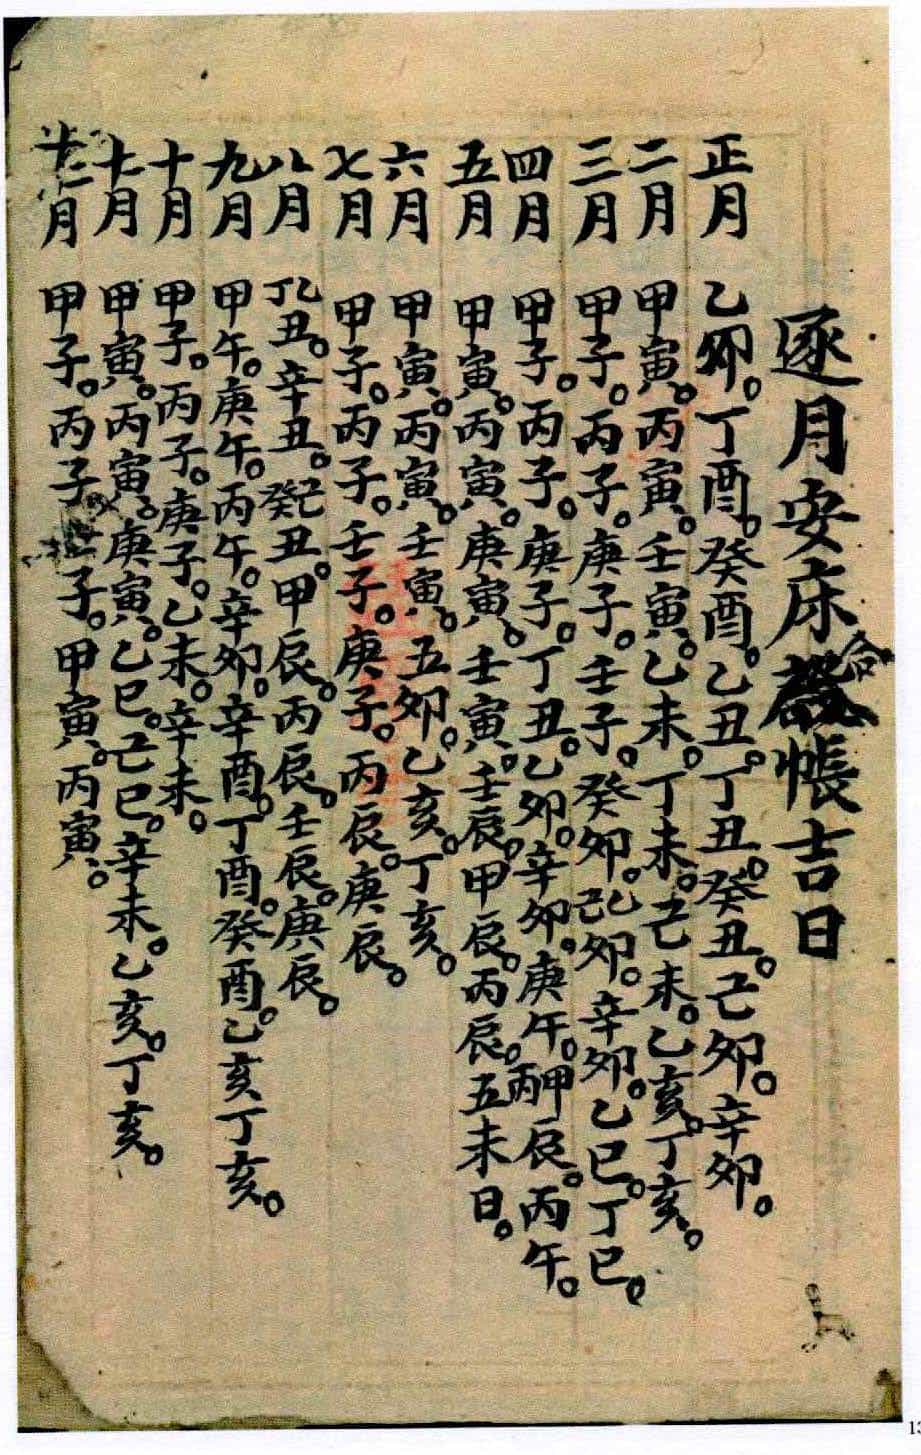 逐月安床合帳吉日
正月 乙卯。丁酉。癸酉。乙丑。丁丑。癸丑。己卯。辛卯。
二月 甲寅。丙寅。壬寅。乙未。丁未。己未。乙亥。丁亥。
三月 甲子。丙子。庚子。壬子。癸卯。己乙卯。辛卯。乙巳。丁巳。
四月 甲子。丙子。庚子。丁丑。乙卯。辛卯。庚午。丙甲辰。丙午。
五月 甲寅。丙寅。庚寅。壬寅。壬辰。甲辰。丙辰。五未日。
六月 甲寅。丙寅。壬寅。五卯。乙亥。丁亥。
七月 甲子。丙子。壬子。庚子。丙辰。庚辰。
八月 丁乙丑。辛丑。癸己丑。甲辰。丙辰。壬辰。庚辰。
九月 甲午。庚午。丙午。辛卯。辛酉。丁酉。癸酉。乙亥丁亥。
十月 甲子。丙子。庚子。乙未。辛未。
十一月 甲寅。丙寅。庚寅。乙巳。己巳。辛未。乙亥。丁亥。
十二月 甲子。丙子 子。甲寅。丙寅。
13